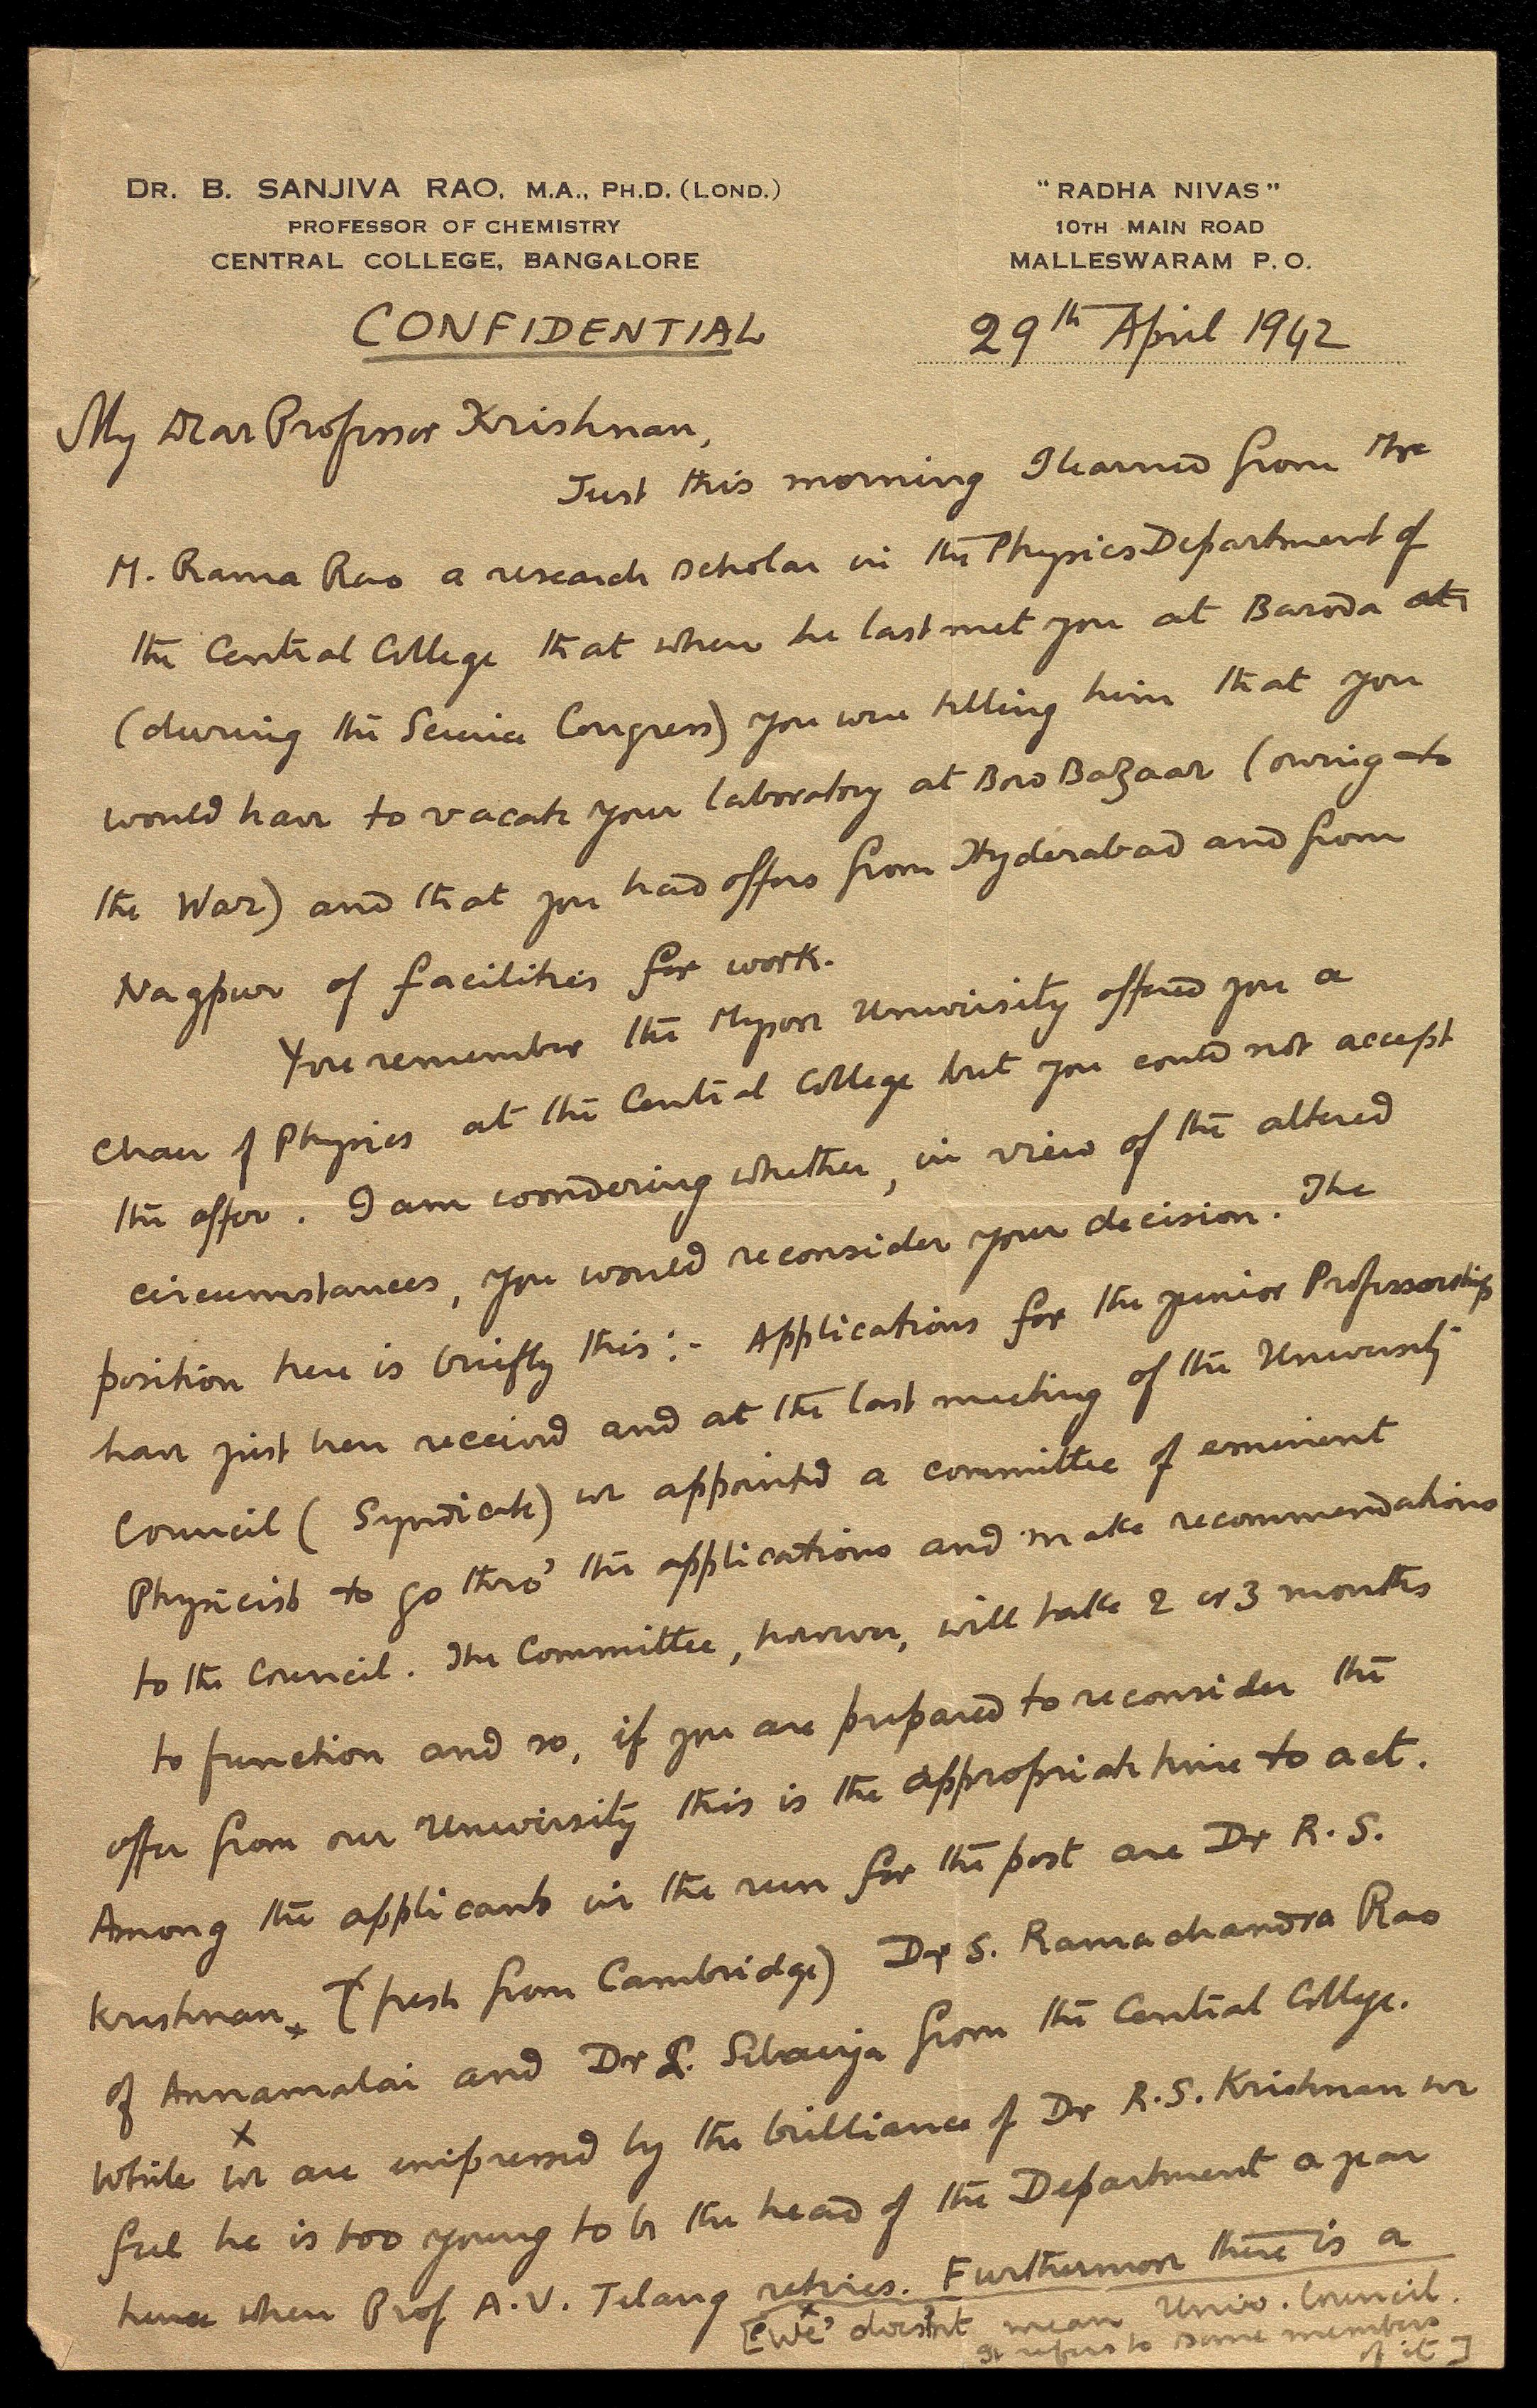 DR. B. SANJIVA RAO, M.A., PH.D. (LOND.)
PROFESSOR OF CHEMISTRY
CENTRAL COLLEGE, BANGALORE
"RADHA NIVAS"
10TH MAIN ROAD
MALLESWARAM P.O.
CONFIDENTIAL
29th April 1942
My dear Professor Krishnan,
Just this morning I learned from Mr
M. Rama Rao a research scholar in the Physics Department of
the Central College that when he last met you at Baroda at
(during the Science Congress) you were telling him that you
would have to vacate your laboratory at Bow Bazaar (owing to
the War) and that you had offers from Hyderabad and from
Nagpur of facilities for work.
You remember the Mysore University offered you a
Chair of Physics at the Central College but you could not accept
the offer. I am wondering whether, in view of the altered
circumstances, you would reconsider your decision. The
position here is briefly this :- Applications for the junior Professorship
have just been received and at the last meeting of the University
Council (Syndicate) we appointed a committee of eminent
Physicists to go thro' the applications and make recommendations
to the Council. The Committee, however, will take 2 or 3 months
to function and so, if you are prepared to reconsider the
offer from our University this is the appropriate time to act.
Among the applicants in the run for the post are Dr R.S.
Krishnan, (fresh from Cambridge) Dr S. Ramachandra Rao
of Annamalai and Dr Sibaiya from the Central College.
x
While we are impressed by the brilliance of Dr R.S. Krishnan we
feel he is too young to be the head of the Department a year
hence when Prof A.V. Telang retires. Furthermore there is a
x
['We' doesn't mean Univ. Council.
It refers to some members
of it]